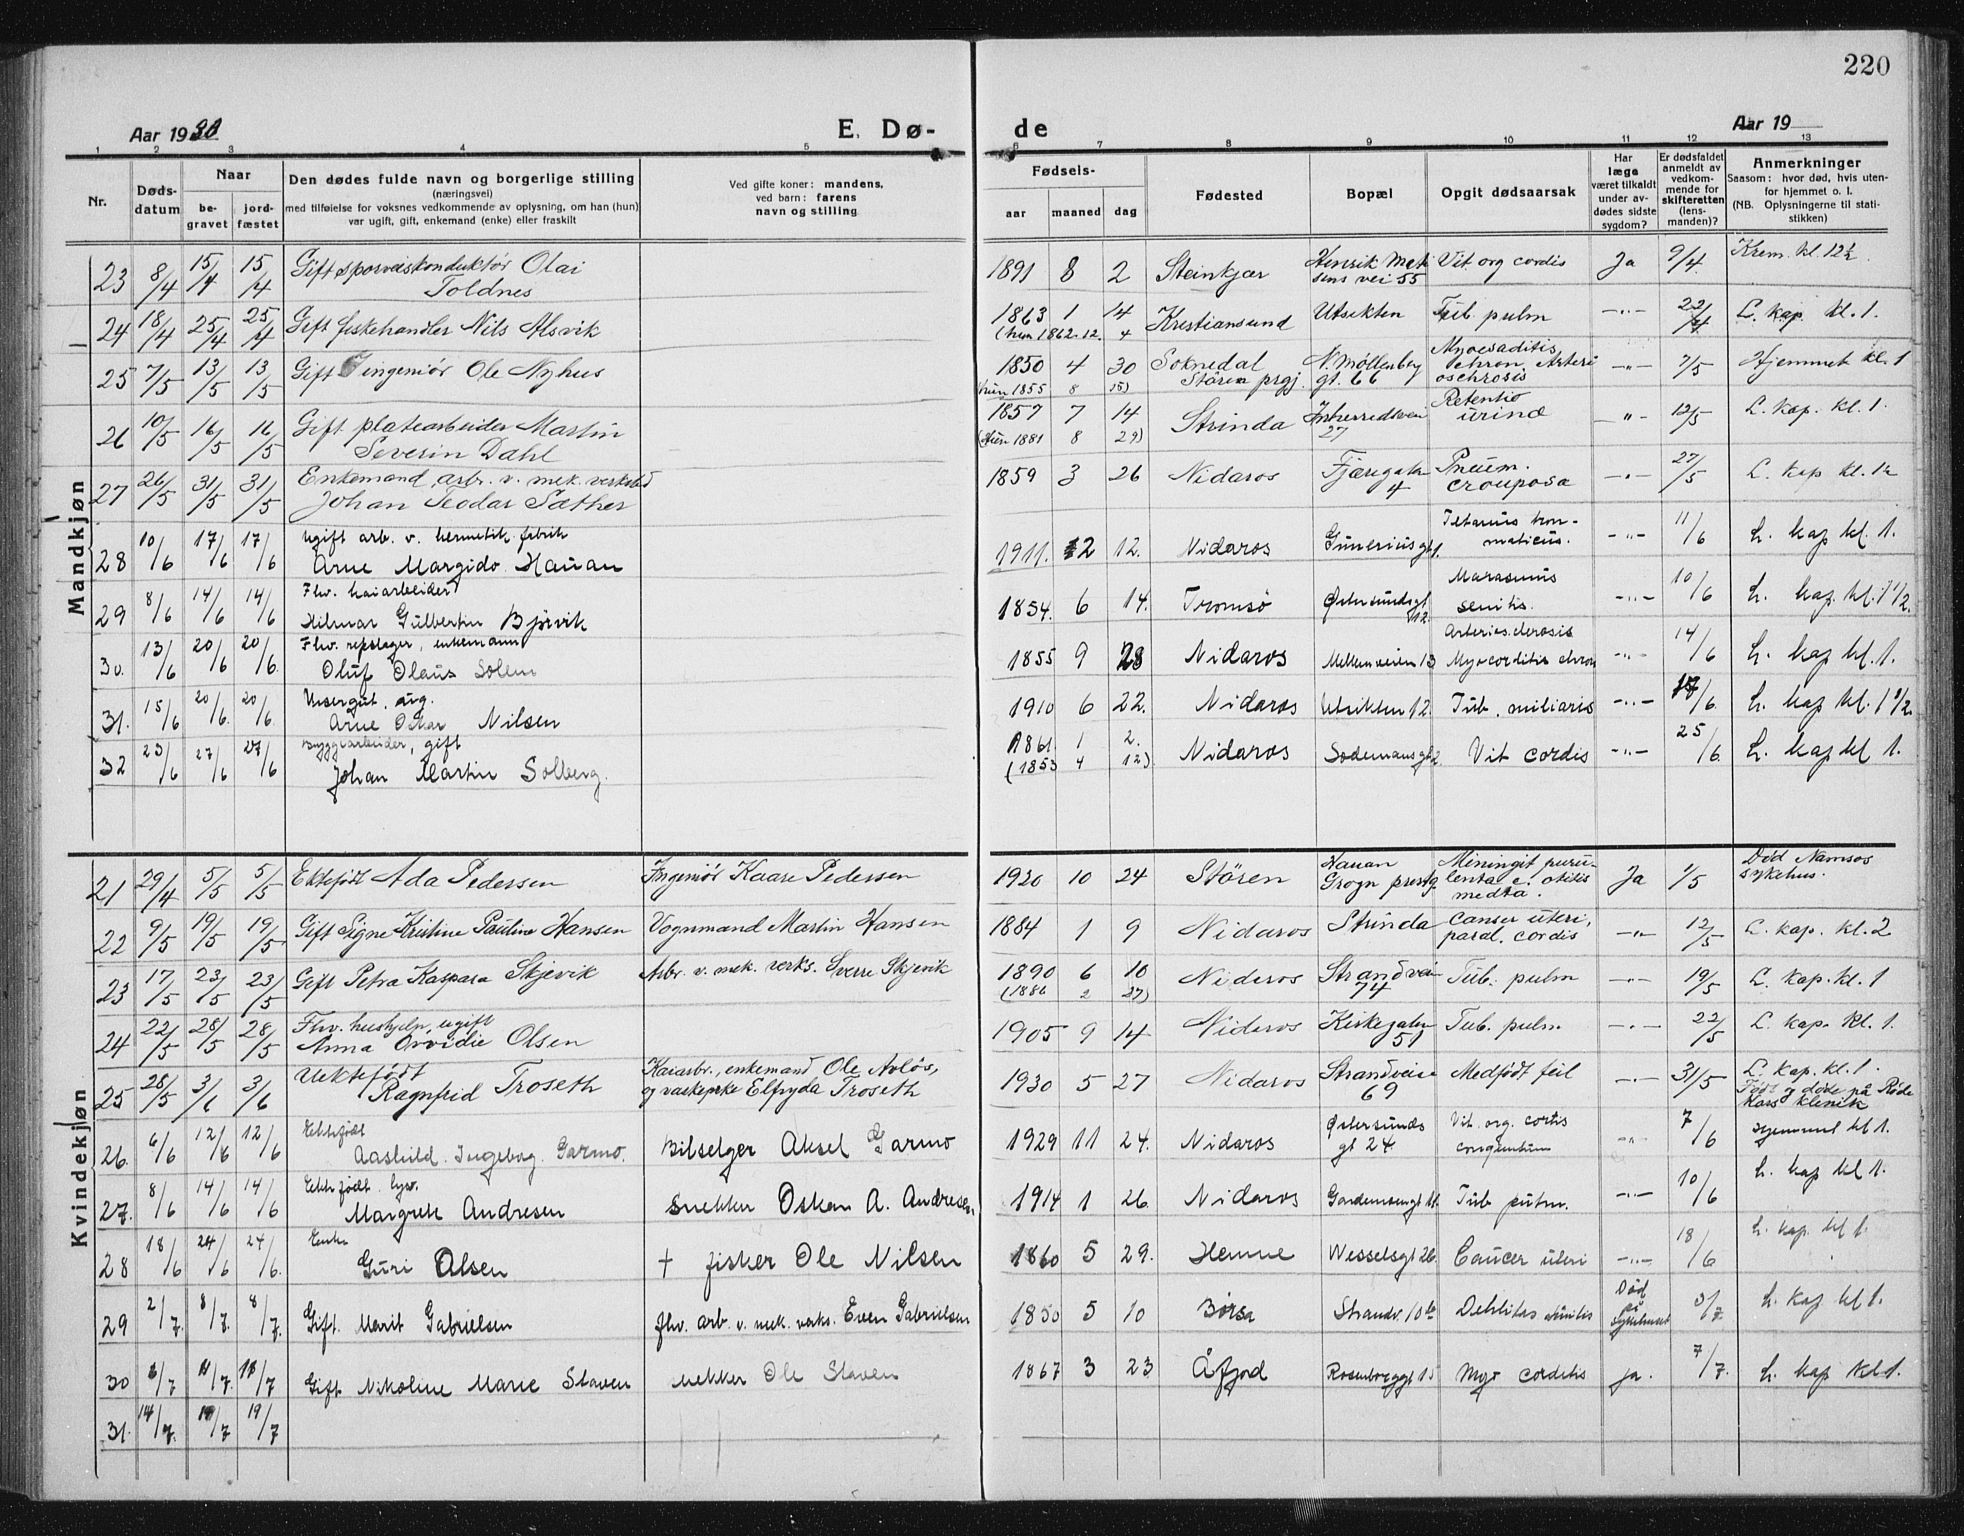 220
Aar 1930
E. Dø-
de
Aar 19
1 2 3 4 5 6 7 8 9 10 11 12 13
Nr.
Døds-
datum
Naar
be-
gravet
jord-
fæstet
Den dødes fulde navn og borgerlige stilling
(næringsvei)
med tilføielse for voksnes vedkommende av oplysning, om han (hun)
var ugift, gift, enkemand (enke) eller fraskilt
Ved gifte koner: mandens,
ved barn: farens
navn og stilling
Fødsels-
aar maaned dag
Fødested
Bopæl
Opgit dødsaarsak
Har
læge
været tilkaldt
under av-
dødes sidste
sygdom?
Er dødsfaldet
anmeldt av
vedkom-
mende for
skifteretten
(lens-
manden)?
Anmerkninger
Saasom: hvor død, hvis uten-
for hjemmet o. l.
(NB. Oplysningerne til stati-
stikken)
Mandkjøn
23 8/4 15/4 15/4 Gift sporveiskonduktør Olai
Toldnes
1891 8 2 Steinkjær Henrik
sens vei 55 Vit. org cordis Ja 9/4 Krem. kl. 12½
24 18/4 25/4 25/4 Gift fiskehandler Nils Alsvik
1863 1 14 Kristiansund Utsikten Tub. pulm -"- 22/4 L. kap. kl. 1.
1862. 12. 4
25 7/5 13/5 13/5 Gift Ingeniør Ole Nyhus
1850 4 30 Soknedal
Støren prgj. N. Møllenberg
gt. 66 chron. Arteri
-"- 7/5 Hjemmet kl. 1
1855 8 15)
26 10/5 16/5 16/5 Gift platearbeider Martin
Severin Dahl
1857 7 14 Strinda 27 Retentio
urinæ -"- 12/5 L. kap. kl. 1.
1881 8 29)
27 26/5 31/5 31/5 Enkemand, arb. v. mek. verksted
Johan Teodor Sæther
1859 3 26 Nidaros Fjæregaten
4 Pneum.
crouposa -"- 27/5 L. kap kl. 12
28 10/6 17/6 17/6 Ugift arb. v. hermetik fabrik
Arne Margido Hauan
1911. 12 12. Nidaros -"- 11/6 L. kap kl. 1.
29 8/6 14/6 14/6 Fhv. kaiarbeider
Hilmar Gulbertin Bjørvik
1854. 6 14. Tromsø Østersundsgt
12. Marasmus
senilis. -"- 10/6 L. kap. kl. 1½.
30. 13/6 20/6 20/6. Fhv. repslager, enkemann
Oluf Olaus Solem
1855 9 28 Nidaros Mellemveien 13 Myocarditis chron -"- 14/6 L. kap kl. 1.
31. 15/6 20/6. 20/6. Visergut, ug.
Arne Oskar Nilsen
1910 6 22. Nidaros Utsikten 12. Tub. miliaris -"- 17/6 L. kap kl. 1½.
32 23/6 27/6 27/6 Byggearbeider, gift
Johan Martin Solberg.
1861. 1 2. Nidaros Sodemansgt 2 Vit cordis -"- 25/6. L. kap kl 1.
(1853 4 12)
Kvindekjøn
21 29/4 5/5 5/5 Ektefødt Ada Pedersen Ingeniør Kaare Pedersen
1920 10 24 Støren Hauan
Grogn prestg. Miningit puru-
lenta c. otitis
medta. Ja 1/5 Død Namsos
sykehus.
22 9/5 19/5 19/5 Gift Signe Kristine Pauline Hansen Vognmand Martin Hansen
1884 1 9 Nidaros Strinda Canser uteri,
paral. cordis -"- 12/5 L. kap. kl. 2
23 17/5 23/5 23/5 Gift Petra Kaspara Skjevik Arbr. v. mek. verks. Sverre Skjevik
1890 6 10 Nidaros Strandvei
74 Tub. pulm -"- 19/5 L. kap. kl. 1
(1886 2 27)
24 22/5 28/5 28/5 Fhv. hushjelp, ugift
Anna Ovidie Olsen
1905 9 14 Nidaros Kirkegaten
51 Tub. pulm. -"- 22/5 L. kap. kl. 1.
25 28/5 3/6 3/6 Uektefødt
Ragnfrid Troseth Kaiarbr., enkemand Ole Avløs,
og vaskepike Elfryda Troseth
1930 5 27 Nidaros Strandveien
69 Medfødt feil -"- 31/5 L. kap. kl. 1.
Født og døde på Røde
Kors klinik
26. 6/6 12/6 12/6 Ektefødt
Aashild Ingebog. Garmo. Bilselger Aksel Garmo
1929 11 24. Nidaros Østersunds
gt 24 Vit. org. cortis
-"- 7/6 Hjemmet kl 1.
27. 8/6 14/6 14/6 Ektefødt
Margrete Andresen Snekker Oskar A. Andresen.
1914 1 26. Nidaros Tub pulm. -"- 10/6 L. kap kl 1.
28 18/6 24/6 24/6. Enke
Guri Olsen † fisker Ole Nilsen
1860 5 29. Hemne Wesselsgt 26. Cancer uteri -"- 18/6 L. kap kl 1.
29 2/7. 8/7. 8/7. Gift. Marit Gabrielsen fhv. arb. v. mek. verks. Even Gabrielsen
1850 5 10 Børsa Strandv. 10 Debilitas senilis Død
på
sykehuset 3/7 L. kap kl 1.
30 6/7 11/7. 11/7 Gift. Nikoline Marie Slaven Snekker Ole Slaven
1867 3 23 Åfjord Rosenborggt 15 Myo corditis ja. 7/7. L. kap kl 1.
31. 14/7. 19/7 19/7